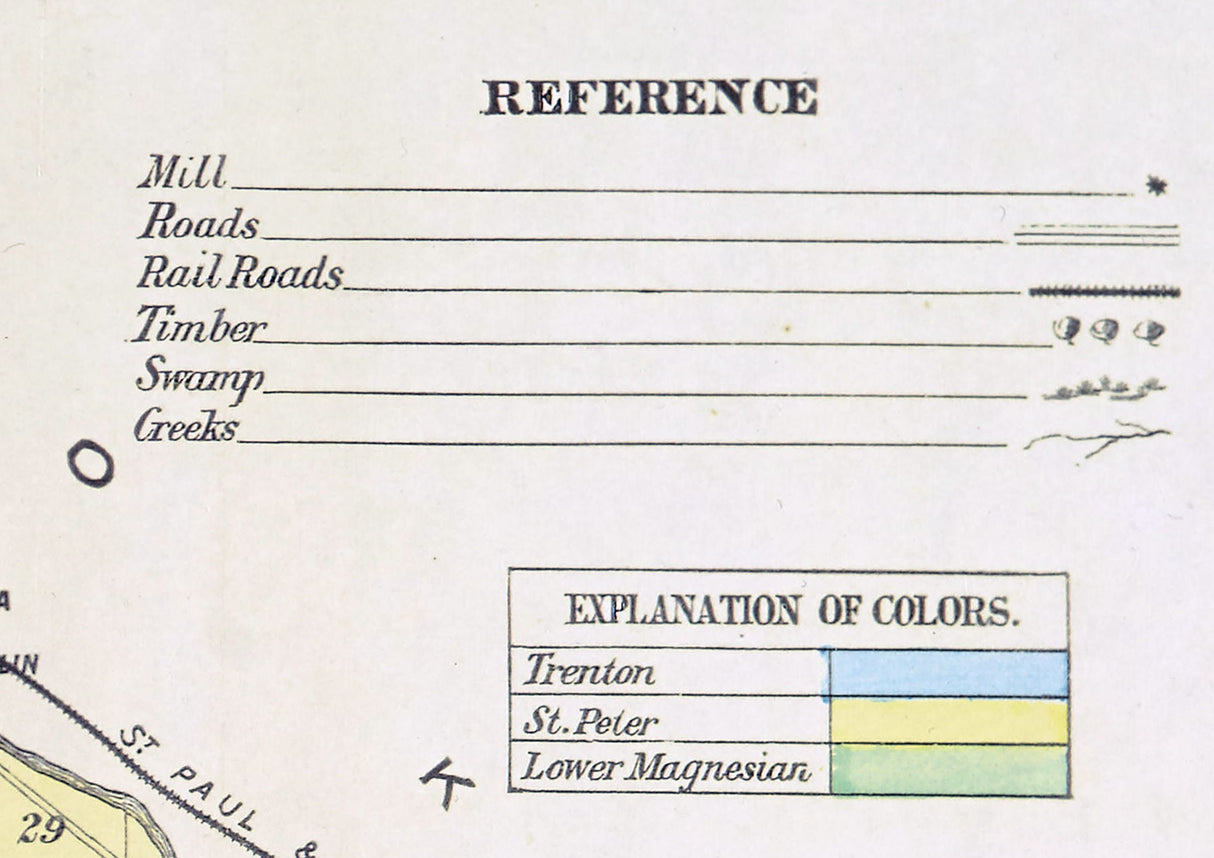 REFERENCE
Mill
Roads
Rail Roads
Timber
Swamp
Creeks
O
A
LIN
EXPLANATION OF COLORS.
Trenton
St. Peter
Lower Magnesian
K
ST PAUL &
29